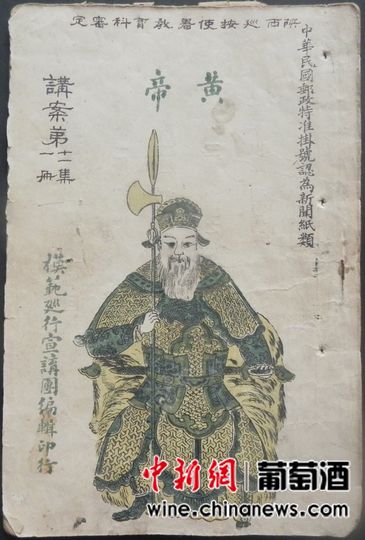 陝西巡按使署教育科審定
中華民國郵政特准掛號認為新聞紙類
黃帝
講案第十一集
一冊
模範巡行宣講團編輯印行
中新網 葡萄酒
wine.chinanews.com